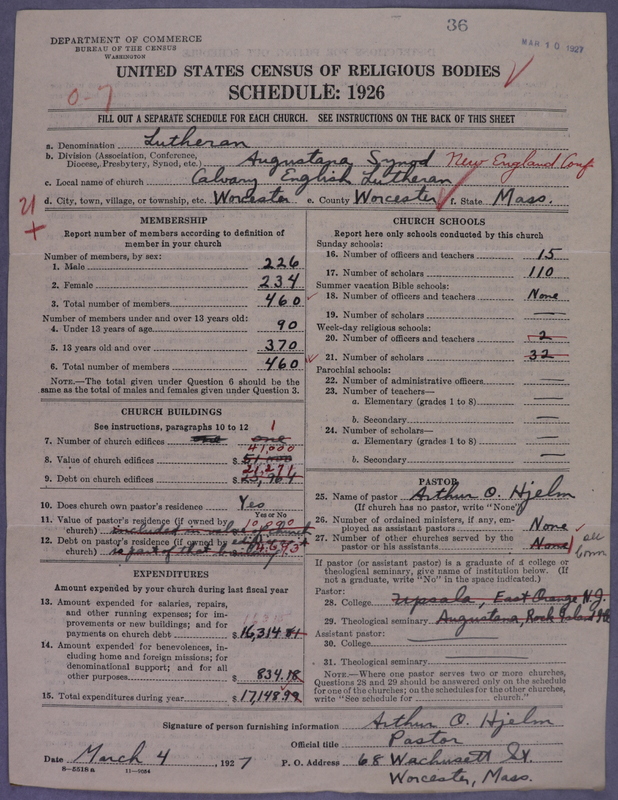 36
MAR 10 1927
DEPARTMENT OF COMMERCE
BUREAU OF THE CENSUS
WASHINGTON
UNITED STATES CENSUS OF RELIGIOUS BODIES
SCHEDULE: 1926
0-7
FILL OUT A SEPARATE SCHEDULE FOR EACH CHURCH. SEE INSTRUCTIONS ON THE BACK OF THIS SHEET
a. Denomination Lutheran
b. Division (Association, Conference, Diocese, Presbytery, Synod, etc.) Augustana Synod New England Conf
c. Local name of church Calvary English Lutheran
d. City, town, village, or township, etc. Worcester e. County Worcester f. State Mass.
MEMBERSHIP
Report number of members according to definition of
member in your church
Number of members, by sex:
1. Male 226
2. Female 234
3. Total number of members 460
Number of members under and over 13 years old:
4. Under 13 years of age 90
5. 13 years old and over 370
6. Total number of members 460
NOTE.—The total given under Question 6 should be the
same as the total of males and females given under Question 3.
CHURCH BUILDINGS
See instructions, paragraphs 10 to 12
7. Number of church edifices one 1
8. Value of church edifices $ 41,000
9. Debt on church edifices $ 21,271
10. Does church own pastor's residence? Yes
Yes or No
11. Value of pastor's residence (if owned by
church) included in value of church
12. Debt on pastor's residence (if owned by
church)
EXPENDITURES
Amount expended by your church during last fiscal year
13. Amount expended for salaries, repairs,
and other running expenses; for im-
provements or new buildings; and for
payments on church debt $ 16,314.81
14. Amount expended for benevolences, in-
cluding home and foreign missions; for
denominational support; and for all
other purposes 834.18
15. Total expenditures during year $ 17,148.99
CHURCH SCHOOLS
Report here only schools conducted by this church
Sunday schools:
16. Number of officers and teachers 15
17. Number of scholars 110
Summer vacation Bible schools:
18. Number of officers and teachers None
19. Number of scholars —
Week-day religious schools:
20. Number of officers and teachers 2
21. Number of scholars 32
Parochial schools:
22. Number of administrative officers —
23. Number of teachers—
a. Elementary (grades 1 to 8) —
b. Secondary —
24. Number of scholars—
a. Elementary (grades 1 to 8) —
b. Secondary —
PASTOR
25. Name of pastor Arthur O. Hjelm
(If church has no pastor, write "None")
26. Number of ordained ministers, if any, em-
ployed as assistant pastors None
27. Number of other churches served by the
pastor or his assistants None
If pastor (or assistant pastor) is a graduate of a college or
theological seminary, give name of institution below. (If
not a graduate, write "No" in the space indicated.)
Pastor:
28. College Upsala, East Orange N.J.
29. Theological seminary Augustana, Rock Island Ill
Assistant pastor:
30. College
31. Theological seminary
NOTE.—Where one pastor serves two or more churches,
Questions 28 and 29 should be answered only on the schedule
for one of the churches; on the schedules for the other churches,
write "See schedule for church."
Signature of person furnishing information Arthur O. Hjelm
Official title Pastor
Date March 4, 1927 P. O. Address 68 Wachusett St.
Worcester, Mass.
8-5518 a 11-9084